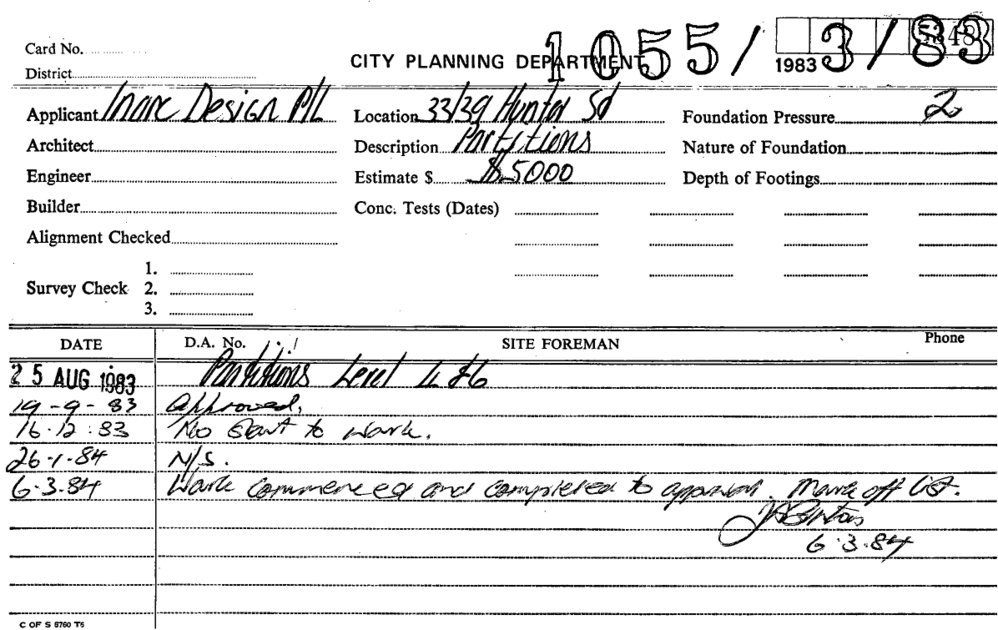 Card No.
CITY PLANNING DEPARTMENT
1055/3/83
1983
District
Applicant Inarc Design P/L Location 33/39 Hunter St Foundation Pressure 2
Architect Description Partitions Nature of Foundation
Engineer Estimate $ $5000 Depth of Footings
Builder Conc. Tests (Dates)
Alignment Checked
1.
Survey Check 2.
3.
DATE D.A. No. SITE FOREMAN Phone
25 AUG 1983 Partitions Level
19-9-83 Approved.
16.12.83 No Start to work.
26-1-84 N/S.
6.3.84 Work commenced and completed to approval. Mark off list.
6.3.84
C OF S 5760 T5